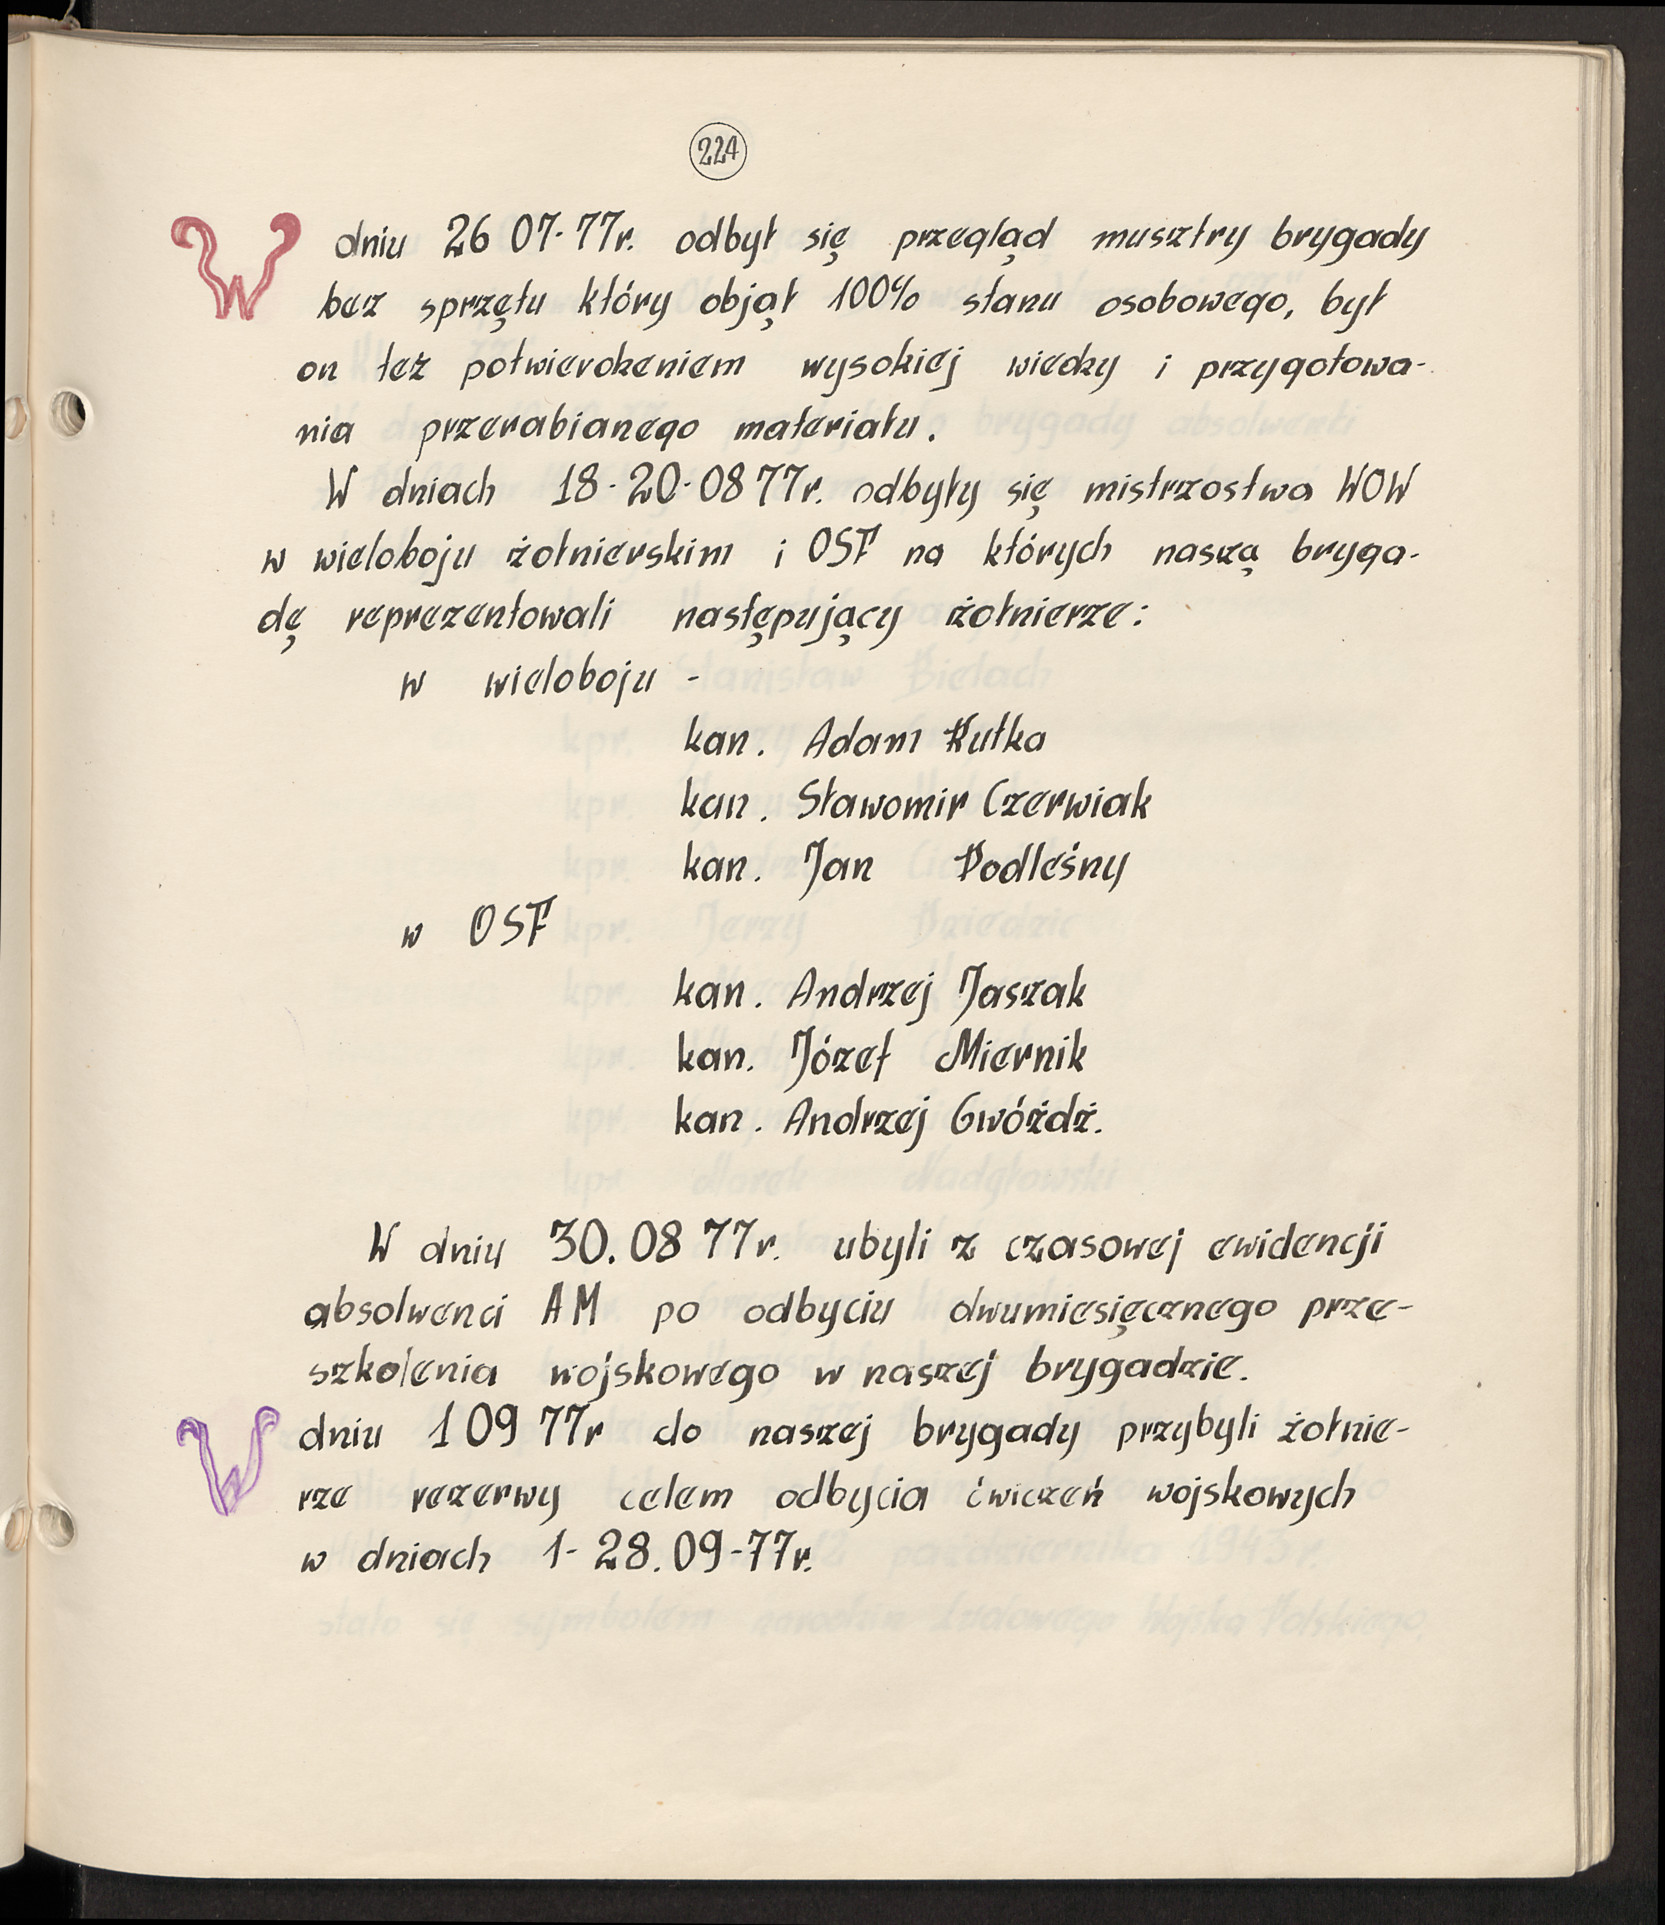 224
W dniu 26 07-77r. odbył się przegląd musztry brygady
bez sprzętu który objął 100% stanu osobowego, był
on też potwierdzeniem wysokiej wiedzy i przygotowa-
nia przerabianego materiału.
W dniach 18-20-08 77r. odbyły się mistrzostwa WOW
w wieloboju żołnierskim i OSF na których naszą bryga-
dę reprezentowali następujący żołnierze:
w wieloboju -
kan. Adam Kutka
kan. Sławomir Czerwiak
kan. Jan Podleśny
w OSF
kan. Andrzej Jaszak
kan. Józef Miernik
kan. Andrzej Gwóźdź.
W dniu 30.08 77r. ubyli z czasowej ewidencji
absolwenci AM po odbyciu dwumiesięcznego prze-
szkolenia wojskowego w naszej brygadzie.
W dniu 1 09 77r do naszej brygady przybyli żołnie-
rze rezerwy celem odbycia ćwiczeń wojskowych
w dniach 1-28.09-77r.